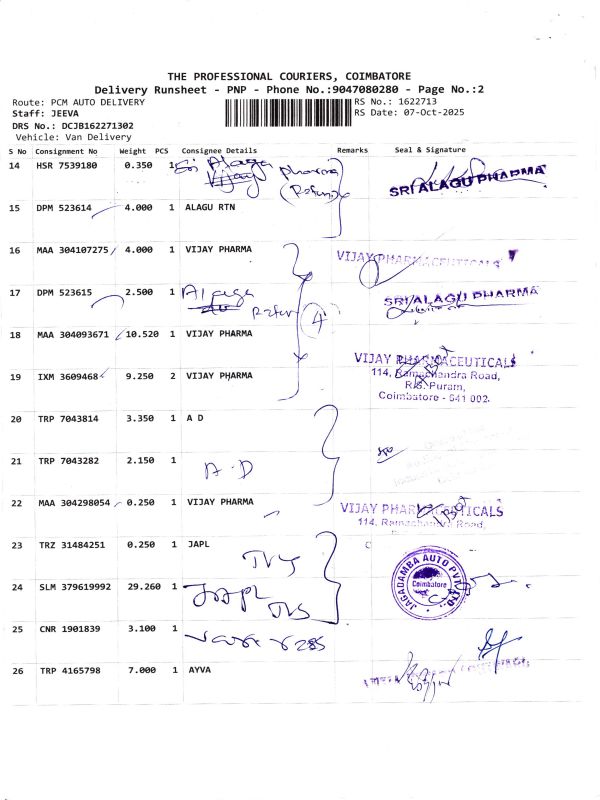 THE PROFESSIONAL COURIERS, COIMBATORE
Delivery Runsheet - PNP - Phone No.:9047080280 - Page No.:2
Route: PCM AUTO DELIVERY RS No.: 1622713
Staff: JEEVA RS Date: 07-Oct-2025
DRS No.: DCJB162271302
Vehicle: Van Delivery
S No Consignment No Weight PCS Consignee Details Remarks Seal & Signature
14 HSR 7539180 0.350 1 Sri Alaga pharma
Vijay (Return)
SRI ALAGU PHARMA
15 DPM 523614 4.000 1 ALAGU RTN
16 MAA 304107275 4.000 1 VIJAY PHARMA
VIJAY PHARMACEUTICALS
17 DPM 523615 2.500 1 Alaga
SRI ALAGU PHARMA
4
18 MAA 304093671 10.520 1 VIJAY PHARMA
VIJAY PHARMACEUTICALS
114, Ramachandra Road,
19 IXM 3609468 9.250 2 VIJAY PHARMA
R.S. Puram,
Coimbatore - 641 002.
20 TRP 7043814 3.350 1 A D
21 TRP 7043282 2.150 1
A.D
22 MAA 304298054 0.250 1 VIJAY PHARMA
VIJAY PHARMACEUTICALS
114, Ramachandra Road,
23 TRZ 31484251 0.250 1 JAPL
TVS
JAGADAMBA AUTO PVT LTD.
Coimbatore
24 SLM 379619992 29.260 1 JAPL
TVS
25 CNR 1901839 3.100 1
26 TRP 4165798 7.000 1 AYVA